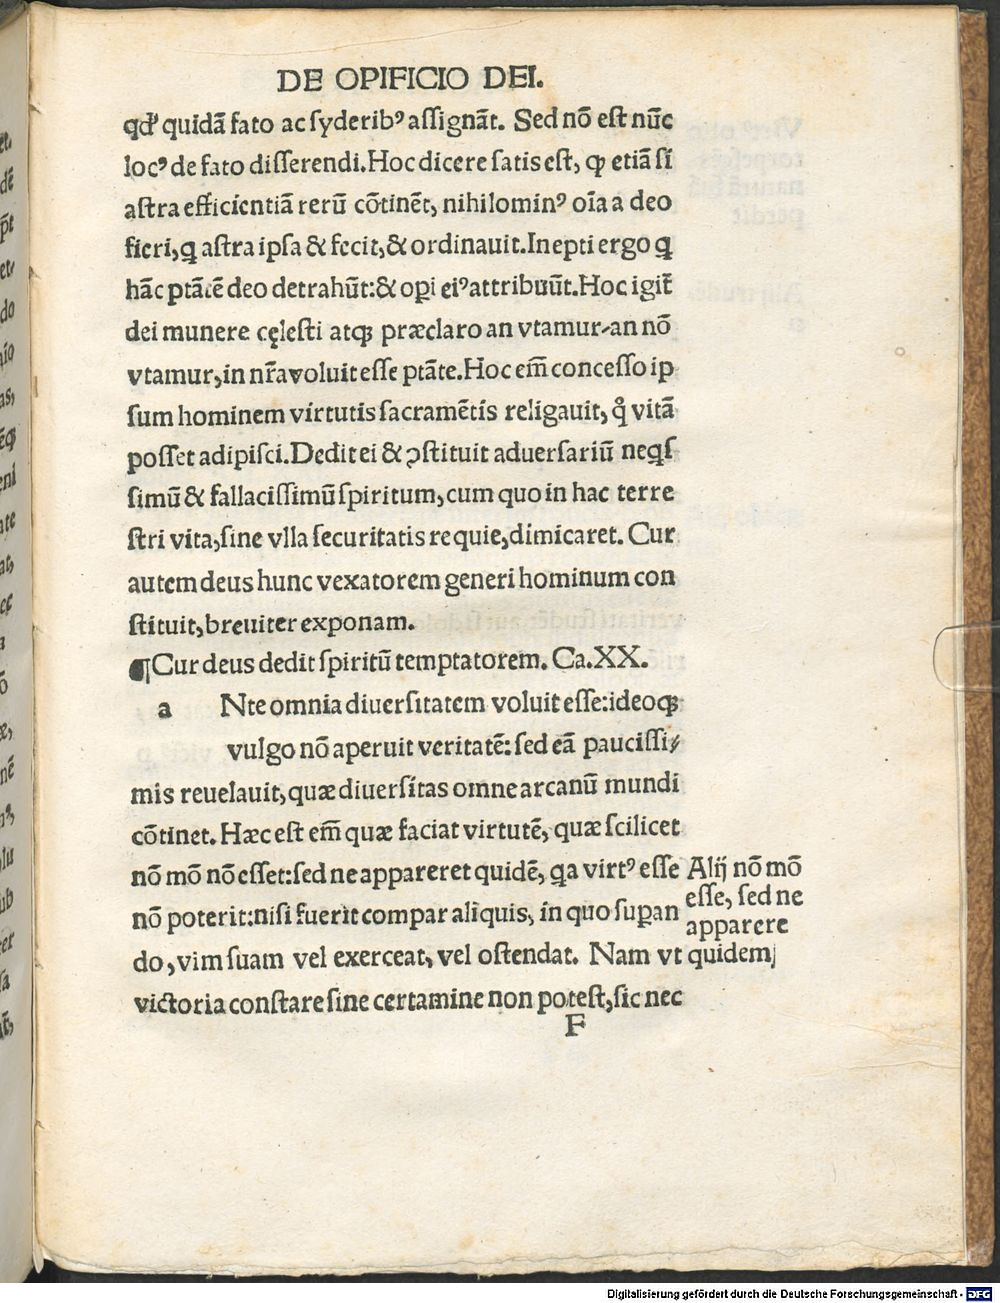 DE OPIFICIO DEI.
qđ quidā fato ac ſyderibꝰ aſſignāt. Sed nō eſt nūc
locꝰ de fato diſſerendi. Hoc dicere ſatis eſt, ꝙ etiā ſi
aſtra efficientiā rerū cōtinēt, nihilominꝰ oīa a deo
fieri, q aſtra ipſa & fecit, & ordinauit. Inepti ergo q
hāc ptātē deo detrahūt: & opi eiꝰ attribuūt. Hoc igit
dei munere cęleſti atqꝫ præclaro an vtamur, an nō
vtamur, in nr̄a voluit eſſe ptāte. Hoc em̄ conceſſo ip
ſum hominem virtutis ſacramētis religauit, q̊ vitā
poſſet adipiſci. Dedit ei & ꝯſtituit aduerſariū neqſ
ſimū & fallaciſſimū ſpiritum, cum quo in hac terre
ſtri vita, ſine vlla ſecuritatis requie, dimicaret. Cur
autem deus hunc vexatorem generi hominum con
ſtituit, breuiter exponam.
¶Cur deus dedit ſpiritū temptatorem. Ca.XX.
a Nte omnia diuerſitatem voluit eſſe: ideoqꝫ
vulgo nō aperuit veritatē: ſed eā pauciſſi⸗
mis reuelauit, quæ diuerſitas omne arcanū mundi
cōtinet. Hæc eſt em̄ quæ faciat virtutē, quæ ſcilicet
nō mō nō eſſet: ſed ne appareret quidē, qa virtꝰ eſſe
nō poterit: niſi fuerit compar aliquis, in quo ſupan
do, vim ſuam vel exerceat, vel oſtendat. Nam vt
victoria conſtare ſine certamine non poteſt, ſic nec
Alij nō mō
eſſe, ſed ne
apparere
quidem
F
Digitalisierung gefördert durch die Deutsche Forschungsgemeinschaft - DFG